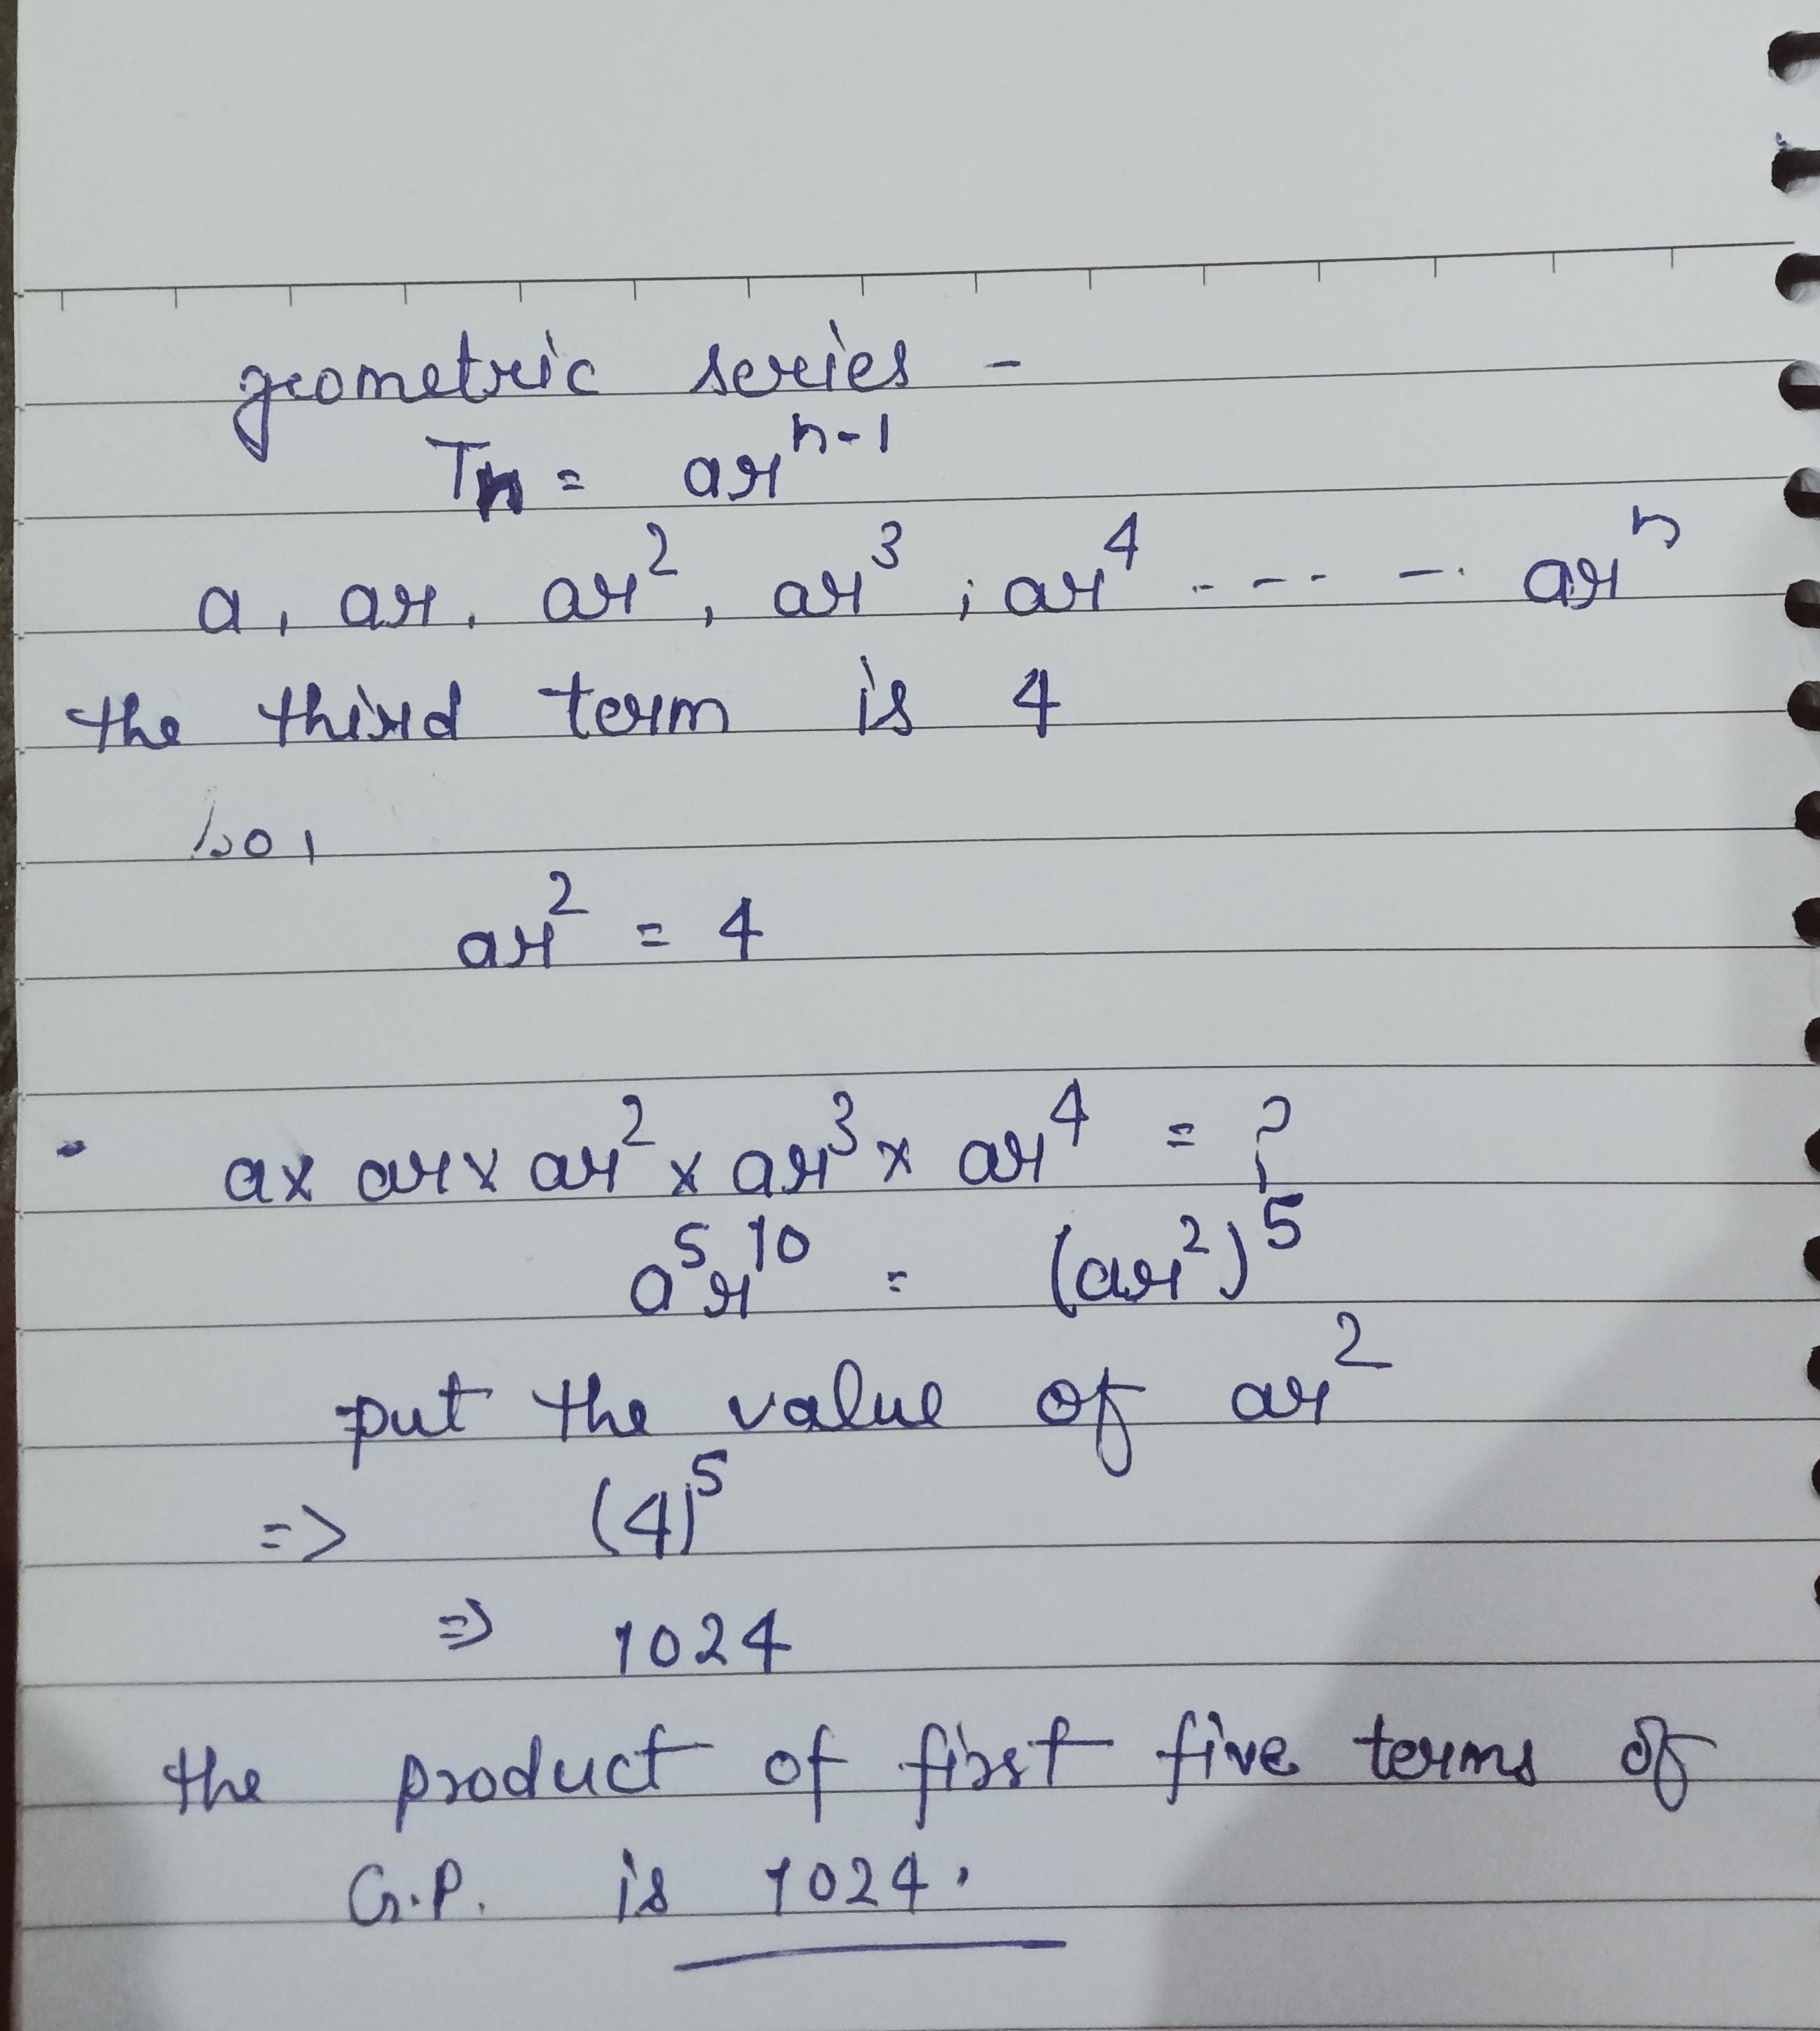 geometric series -
Tn = ar^n-1
a, ar, ar², ar³, ar⁴ - - - - - - ar^n
the third term is 4
so,
ar² = 4
a x ar x ar² x ar³ x ar⁴ = ?
a⁵r¹⁰ = (ar²)⁵
put the value of ar²
=> (4)⁵
=> 1024
the product of first five terms of
G.P. is 1024.